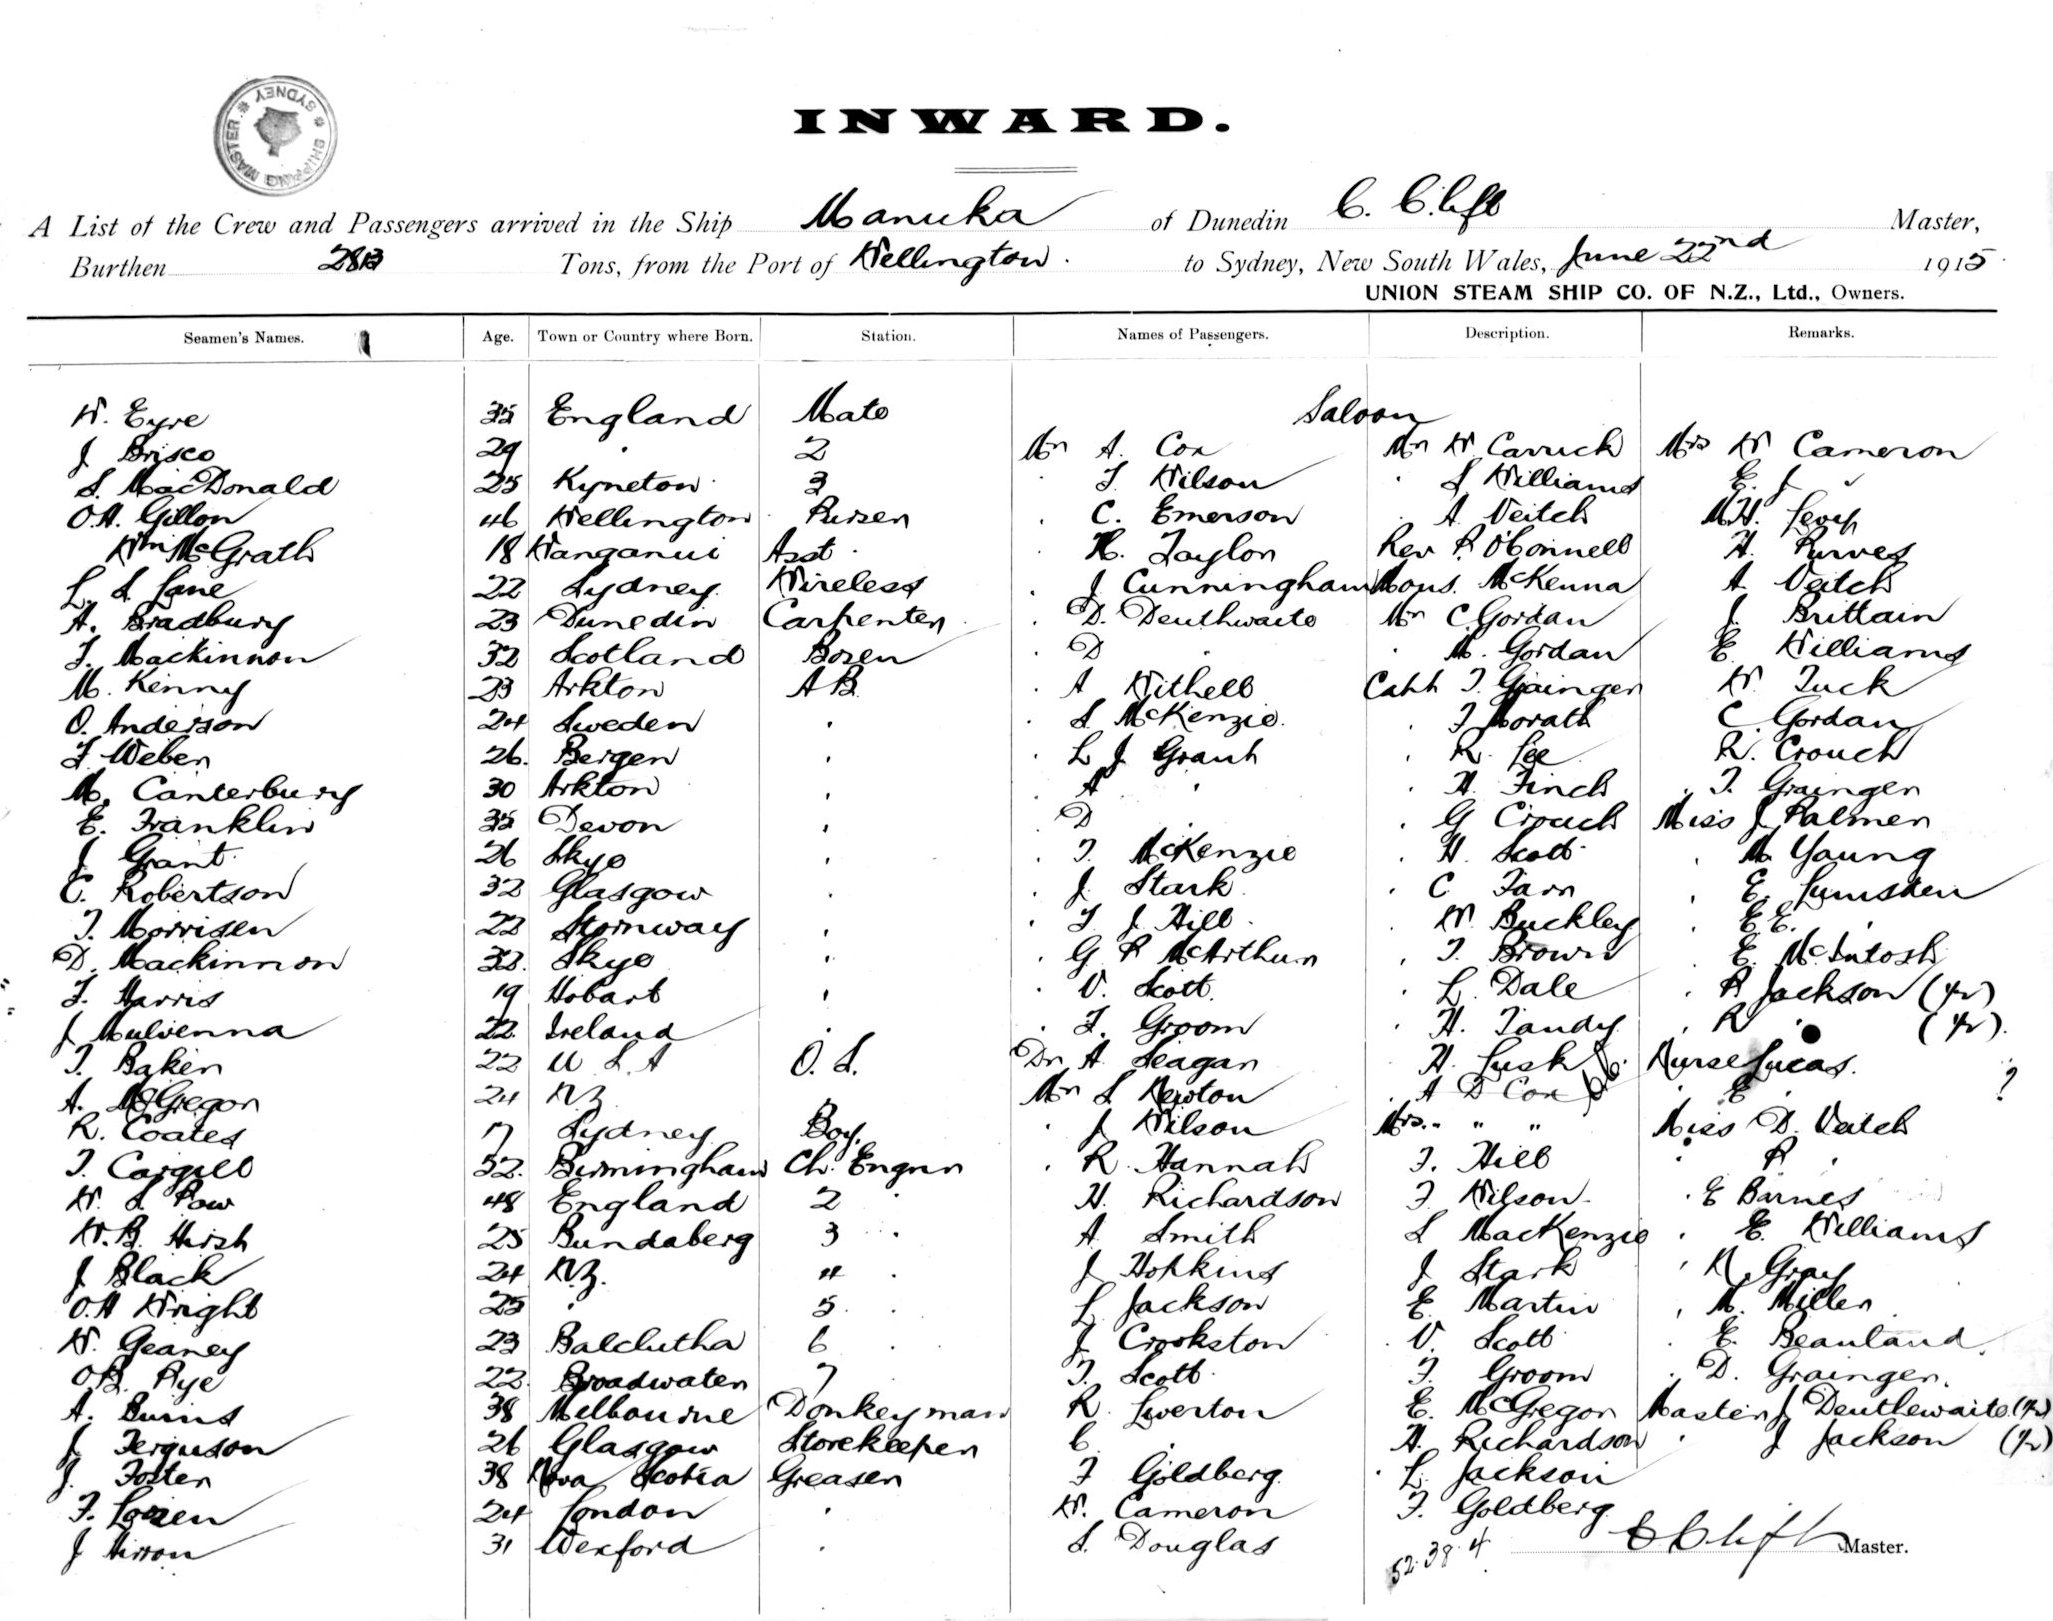 SHIPPING MASTER * SYDNEY *
INWARD.
A List of the Crew and Passengers arrived in the Ship Manuka of Dunedin C. Clift Master,
Burthen Tons, from the Port of Wellington. to Sydney, New South Wales, June 22nd 1915
UNION STEAM SHIP CO. OF N.Z., Ltd., Owners.
Seamen's Names. Age. Town or Country where Born. Station. Names of Passengers. Description. Remarks.
W. Eyre 35 England Mate Saloon
J Brisco 29 " 2 Mr A. Cox Mr W. Carrick Mrs W Cameron
S. MacDonald 25 Kyneton 3 " T Wilson " S Williams E. J "
O.A. Gillon 46 Wellington Purser " C. Emerson " A Veitch M.H. Levy
Wm McGrath 18 Wanganui Asst " H. Taylor Rev P O'Connell H. Purves
L. S. Lane 22 Sydney Wireless " J Cunningham Mons. McKenna A. Veitch
A. Bradbury 23 Dunedin Carpenter " D. Deuthwaite Mr C Gordan J. Brittain
J. Mackinnon 32 Scotland Bosen " D " " M. Gordan E Williams
M. Kenny 23 Arkton A B. " A Withell Capt T. Grainger W. Tuck
O. Anderson 24 Sweden " " S McKenzie. " T Morath C Gordan
F Weber 26. Bergen " " L J Grant " R. Lee R. Crouch
M. Canterbury 30 Arkton " A " " H. Finch " T. Grainger
E. Franklin 35 Devon " D " " G Crouch Miss J Palmer
J Grant 26 Skye " " T. McKenzie " H. Scott " M Young
C. Robertson 32 Glasgow " " J. Stark " C Tarr " E. Lumsden
T. Morrisen 22 Stornway " " T J Hill " W. Buckley " E. E. "
D. Mackinnon 32. Skye " " G P McArthur " T. Brown " E. McIntosh
F. Harris 19 Hobart " " V. Scott. " L. Dale " P Jackson
J Mulvenna 22 Ireland " " F. Groom " H. Tandy " R "
T. Baker 22 U S A O. S. Dr A. Seagar " H. Lusk Nurse Lucas.
A. McGregor 24 N.Z. " Mr S Newton " A D Cox " E ?
R. Coates 17 Sydney Boy. " J Wilson Mrs. " " " Miss D. Veitch
T. Cargill 52. Birmingham Ch. Engnr " R. Hannah F. Hill " P "
W. S. Paw 48 England 2 " H. Richardson F Wilson " E Barnes
W. B. Hirsh 25 Bundaberg 3 " A Smith S MacKenzie " E. Williams
J Black 24 N.Z. 4 " J Hopkins J Stark " N. Gray
O.A Wright 25 " 5 " L Jackson E Martin " M. Miller
W. Geaney 23 Balclutha 6 " J Crookston " V. Scott " E. Beauland
O.B. Pye 22. Broadwater 7 T. Scott F. Groom " D. Grainger.
A. Burns 38 Melbourne Donkeyman R. Liverton E. McGregor Master J Deuthewaite
J Ferguson 26 Glasgow Storekeeper C. " A. Richardson " J Jackson
J. Foster 38 Nova Scotia Greaser F Goldberg. " L. Jackson
F. 24 London " W. Cameron F. Goldberg.
J 31 Wexford " S. Douglas 52. 38. 4 C Clift Master.